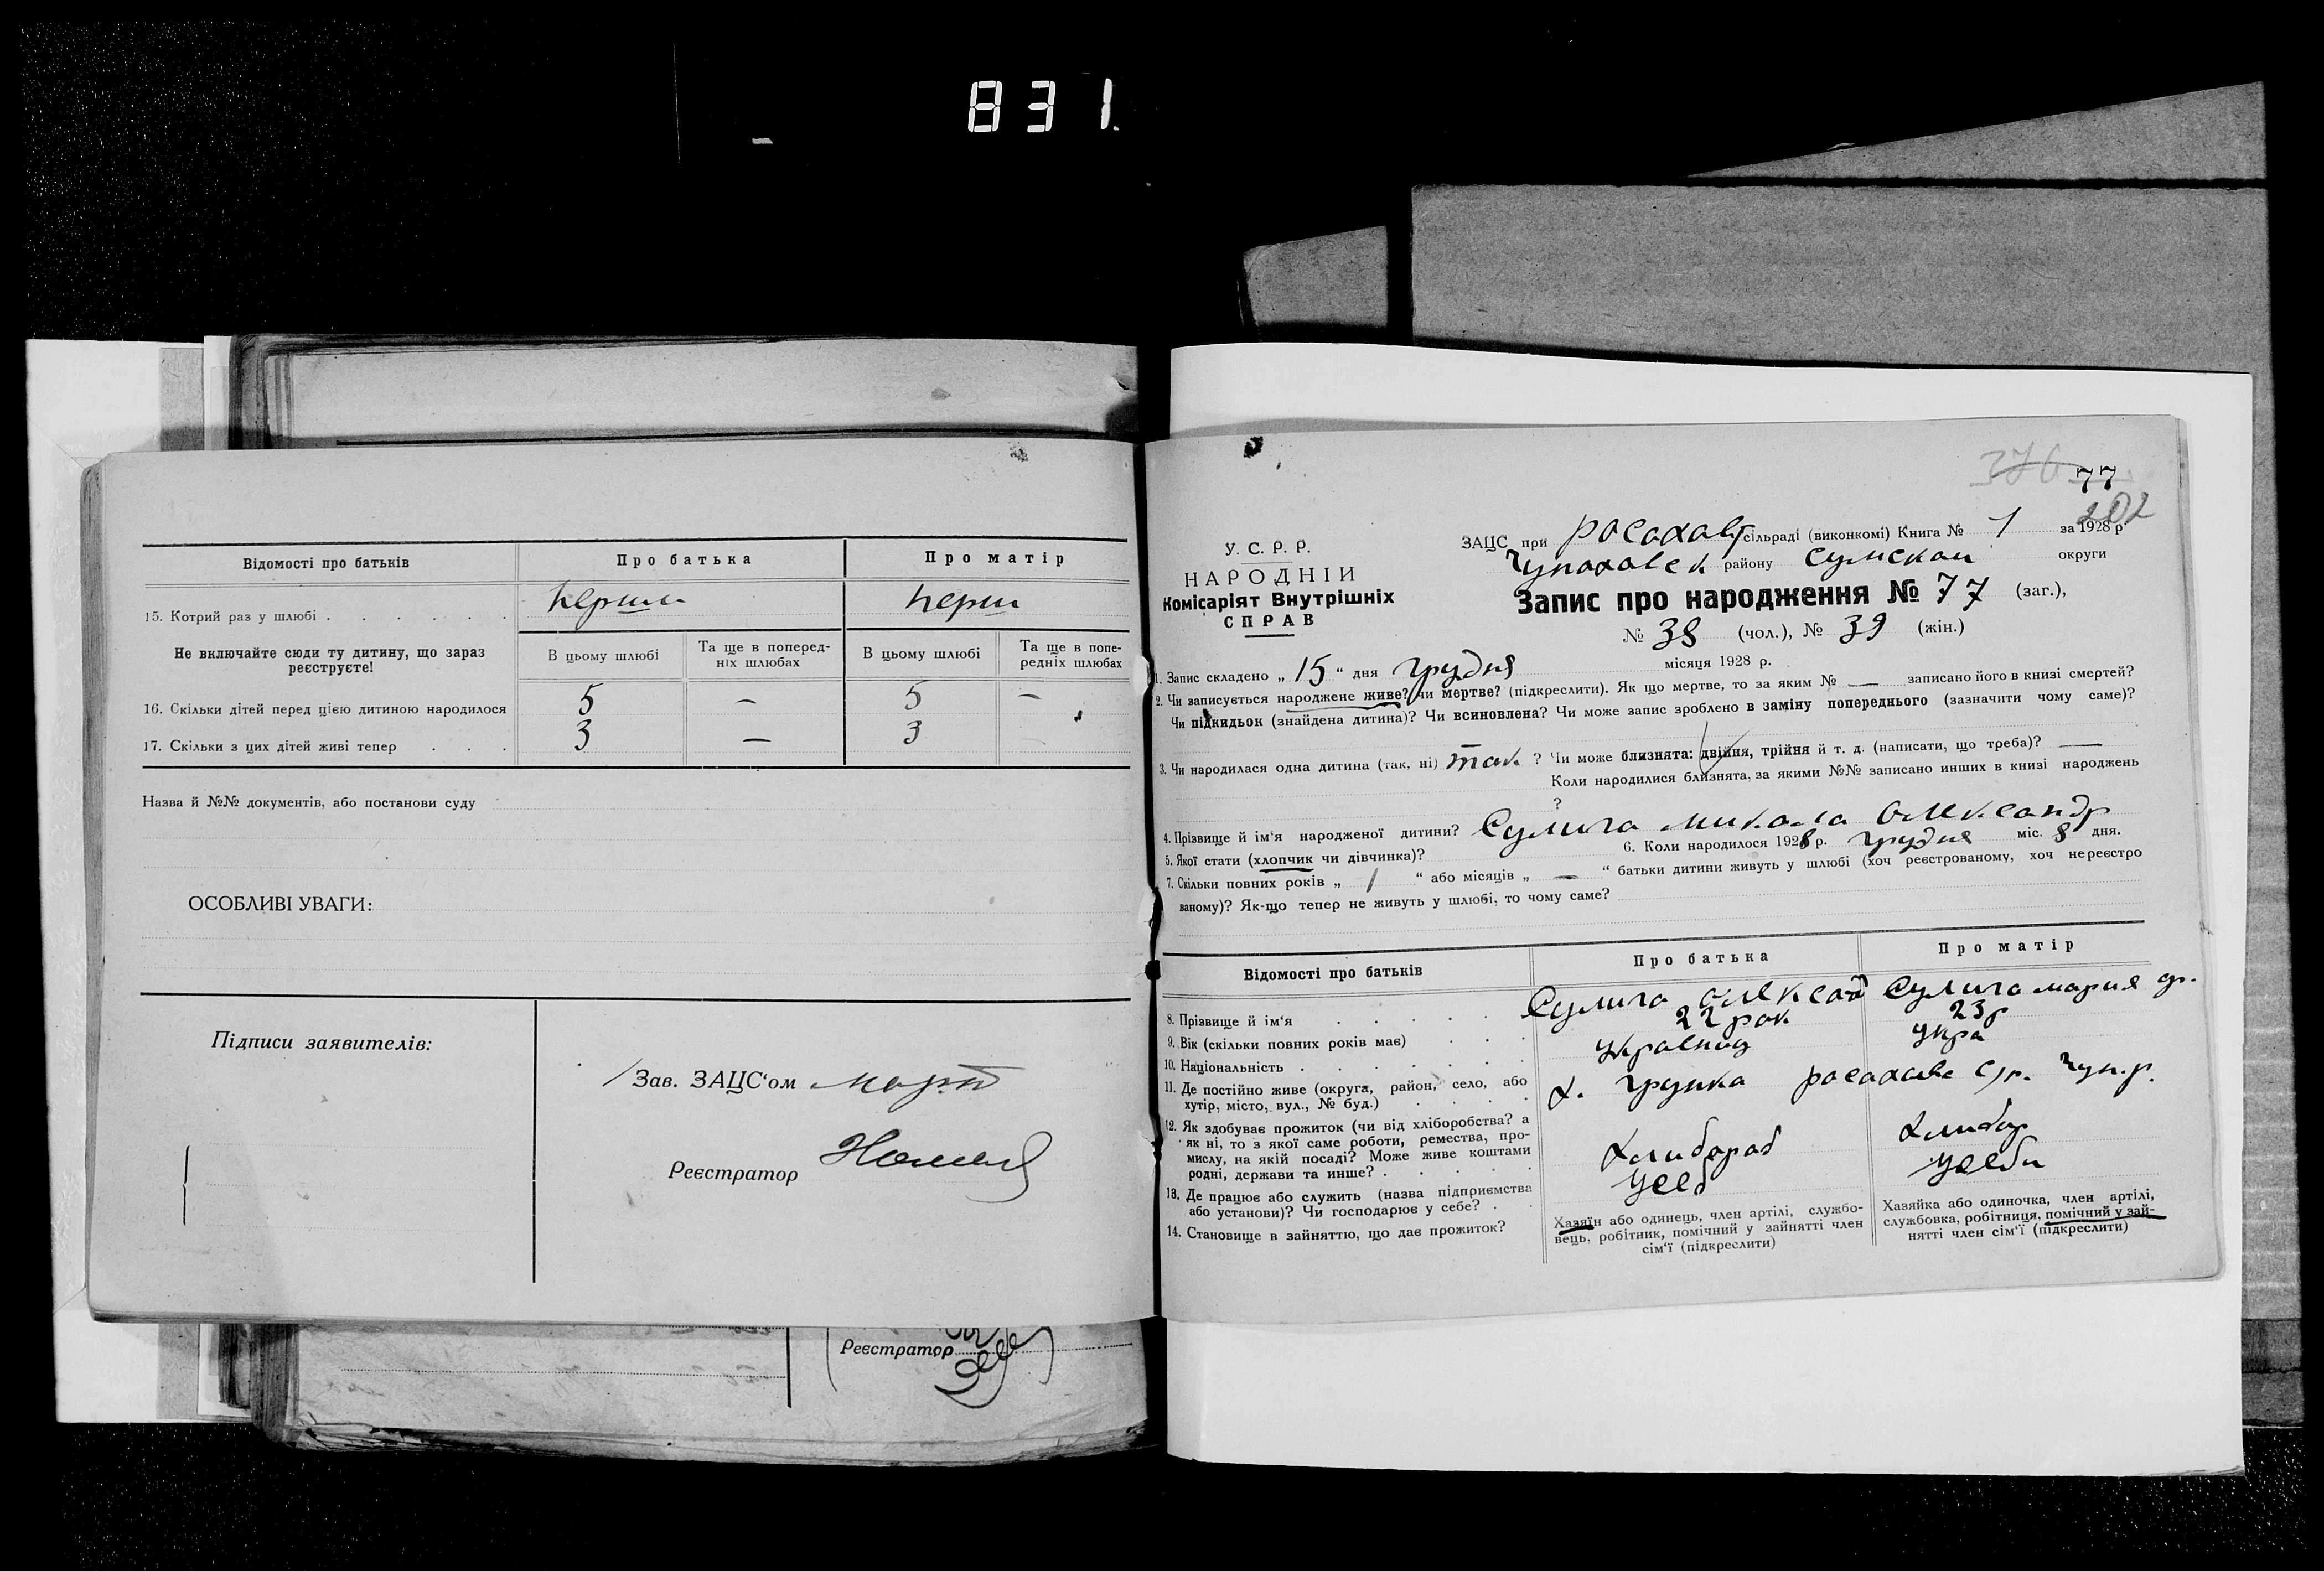 831.
Відомості про батьків
Про батька
Про матір
15. Котрий раз у шлюбі
перши
перш
Не включайте сюди ту дитину, що зараз
реєструєте!
В цьому шлюбі
Та ще в поперед-
ніх шлюбах
В цьому шлюбі
Та ще в попе-
редніх шлюбах
16. Скільки дітей перед цією дитиною народилося
5 — 5 —
17. Скільки з цих дітей живі тепер
3 — 3 —
Назва й №№ документів, або постанови суду
ОСОБЛИВІ УВАГИ:
Підписи заявителів:
Зав. ЗАЦС'ом
Реєстратор
Реєстратор
376
77
202
У. С. Р. Р.
НАРОДНІЙ
Комісаріят Внутрішніх
СПРАВ
ЗАЦС при Росохов сільраді (виконкомі) Книга № 1 за 1928 р
Чупаховск району Сумскои округи
Запис про народження № 77 (заг.),
№ 38 (чол.), № 39 (жін.)
1. Запис складено „ 15 “ дня грудня місяця 1928 р.
2. Чи записується народжене живе? чи мертве? (підкреслити). Як що мертве, то за яким № — записано його в книзі смертей?
Чи підкидьок (знайдена дитина)? Чи всиновлена? Чи може запис зроблено в заміну попереднього (зазначити чому саме)?
3. Чи народилася одна дитина (так, ні) так ? Чи може близнята: двійня, трійня й т. д. (написати, що треба)? —
Коли народилися близнята, за якими №№ записано инших в книзі народжень
?
4. Прізвище й ім'я народженої дитини? Сулига Микола Олександр
5. Якої стати (хлопчик чи дівчинка)? 6. Коли народилося 1928 р. грудня міс. 8 дня.
7. Скільки повних років „ 1 “ або місяців „ — “ батьки дитини живуть у шлюбі (хоч реєстрованому, хоч нереєстро
ваному)? Як-що тепер не живуть у шлюбі, то чому саме?
Відомості про батьків
Про батька
Про матір
8. Прізвище й ім'я
Сулига
Сулига мария
9. Вік (скільки повних років має)
22 рок
23 р
10. Національність
укра
11. Де постійно живе (округа, район, село, або
хутір, місто, вул., № буд.)
х. Грунка с/р. Чуп.р.
12. Як здобуває прожиток (чи від хліборобства? а
як ні, то з якої саме роботи, ремества, про-
мислу, на якій посаді? Може живе коштами
родні, держави та инше?
Хлибороб
Хлибор
13. Де працює або служить (назва підприємства
або установи)? Чи господарює у себе?
Усеб
Усеби
14. Становище в зайняттю, що дає прожиток?
Хазяїн або одинець, член артілі, службо-
вець, робітник, помічний у зайнятті член
сім'ї (підкреслити)
Хазяйка або одиночка, член артілі,
службовка, робітниця, помічний у зай-
нятті член сім'ї (підкреслити)